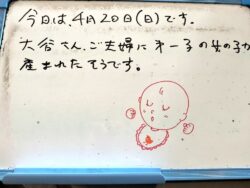 今日は、4月20日(日)です。
大谷さん、ご夫婦に第一子の女の子が
産まれたそうです。